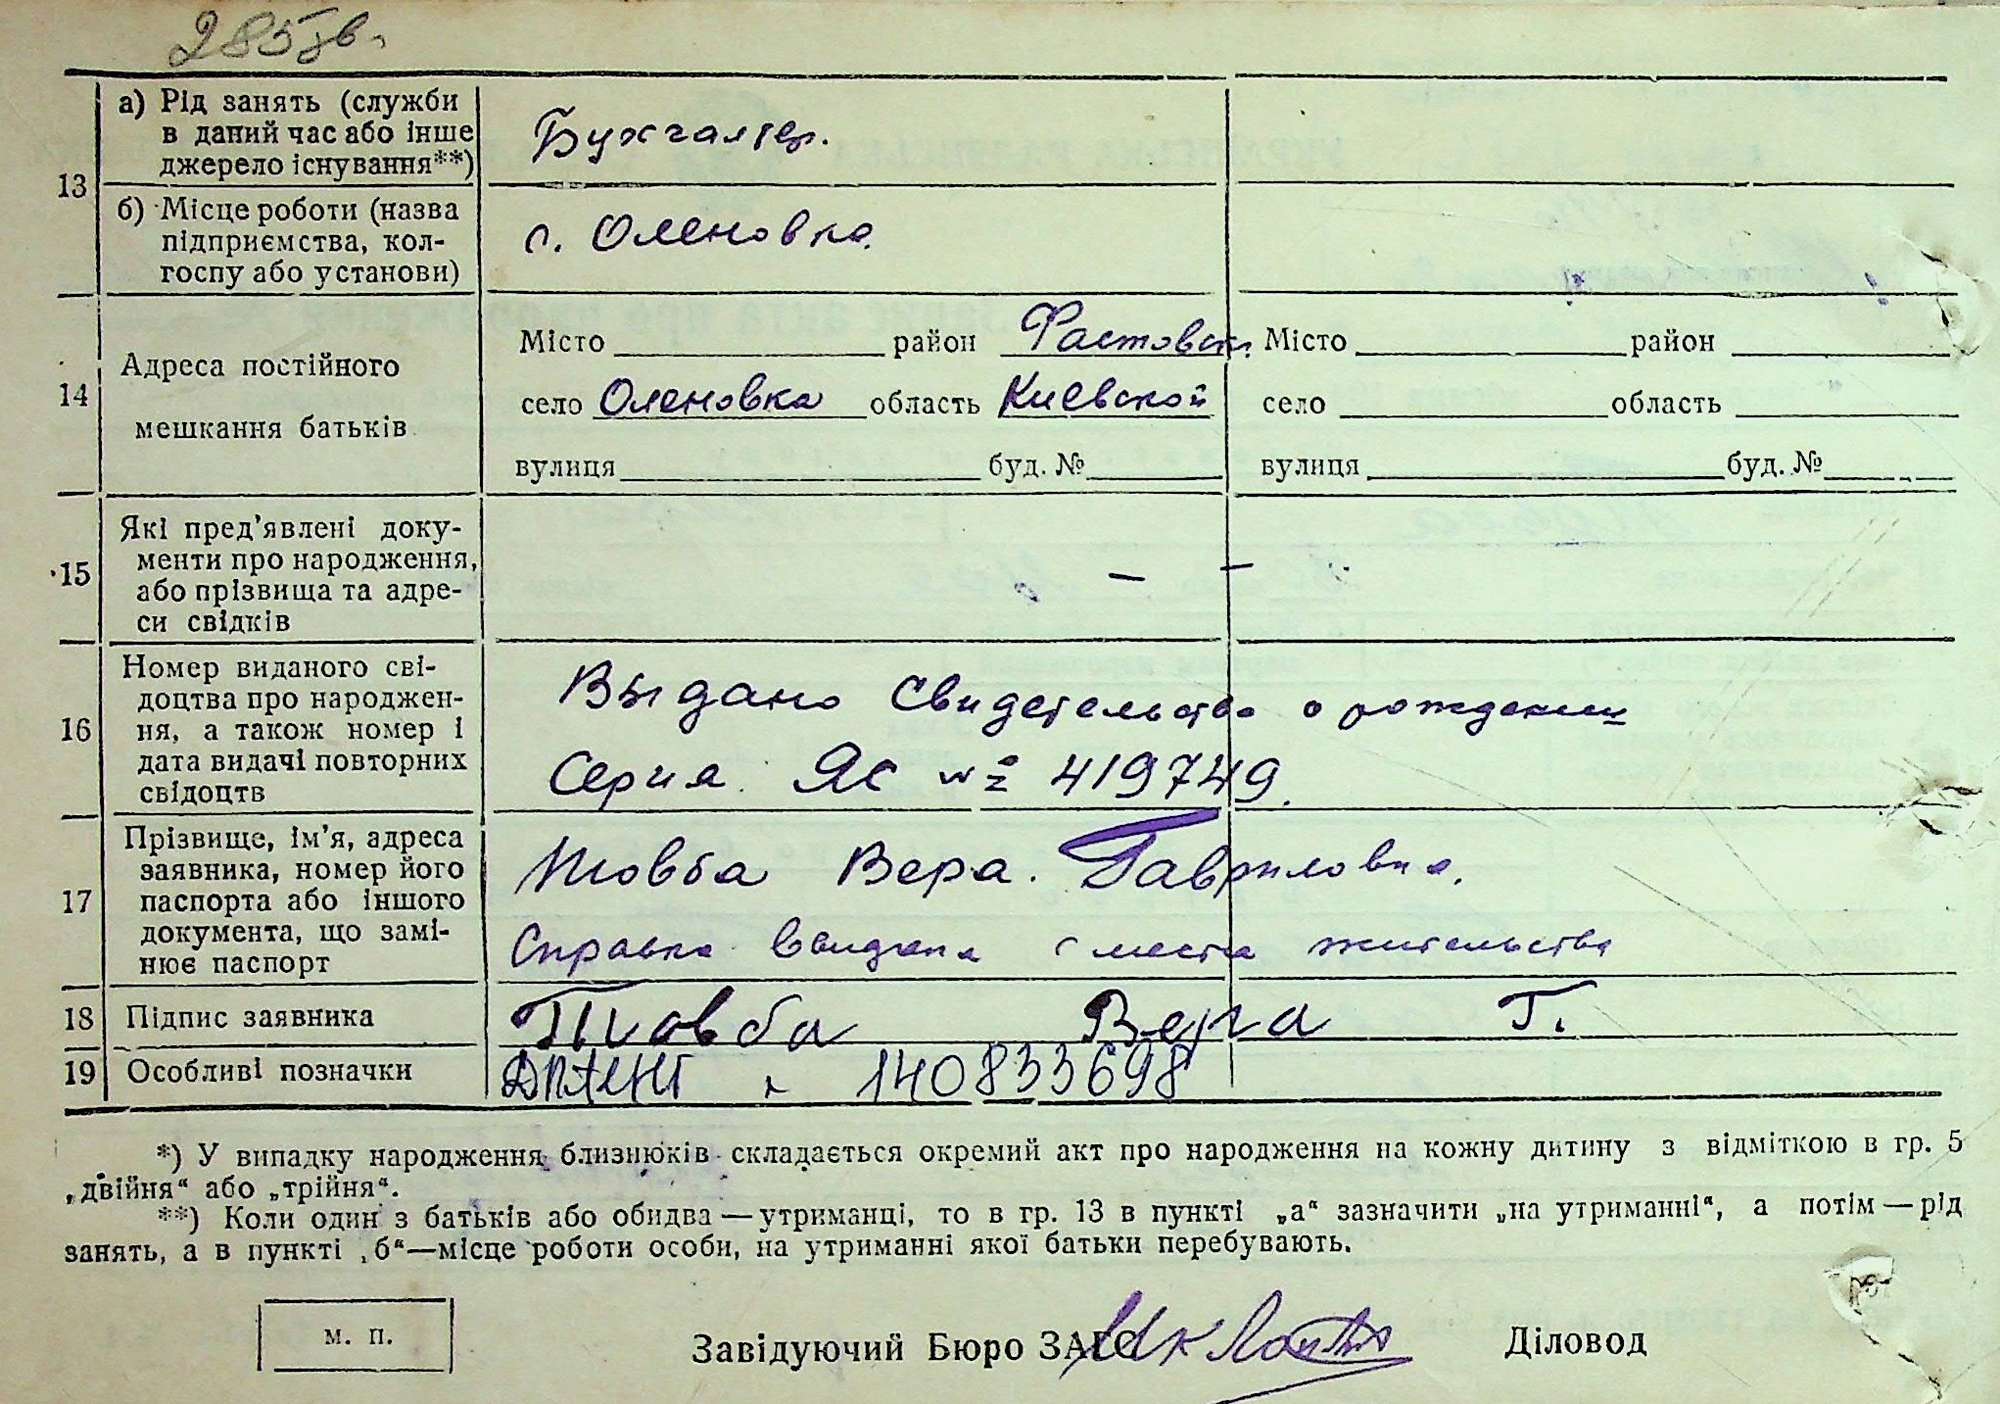 285зв.
13
а) Рід занять (служби в даний час або інше джерело існування**)
Бухгалтер.
б) Місце роботи (назва підприємства, колгоспу або установи)
с. Оленовка
14
Адреса постійного мешкання батьків
Місто район Фастовск.
село Оленовка область Киевской
вулиця буд. №
Місто район
село область
вулиця буд. №
15
Які пред'явлені документи про народження, або прізвища та адреси свідків
— —
16
Номер виданого свідоцтва про народження, а також номер і дата видачі повторних свідоцтв
Выдано Свидетельство о рождении
Серия ЯС № 419749.
17
Прізвище, ім'я, адреса заявника, номер його паспорта або іншого документа, що замінює паспорт
Товба Вера. Гавриловна.
Справка выдана с места жительства
18
Підпис заявника
Товба Вера Г.
19
Особливі позначки
140833698
*) У випадку народження близнюків складається окремий акт про народження на кожну дитину з відміткою в гр. 5
„двійня“ або „трійня“.
**) Коли один з батьків або обидва — утриманці, то в гр. 13 в пункті „а“ зазначити „на утриманні“, а потім — рід
занять, а в пункті „б“—місце роботи особи, на утриманні якої батьки перебувають.
м. п.
Завідуючий Бюро ЗАГС
Діловод